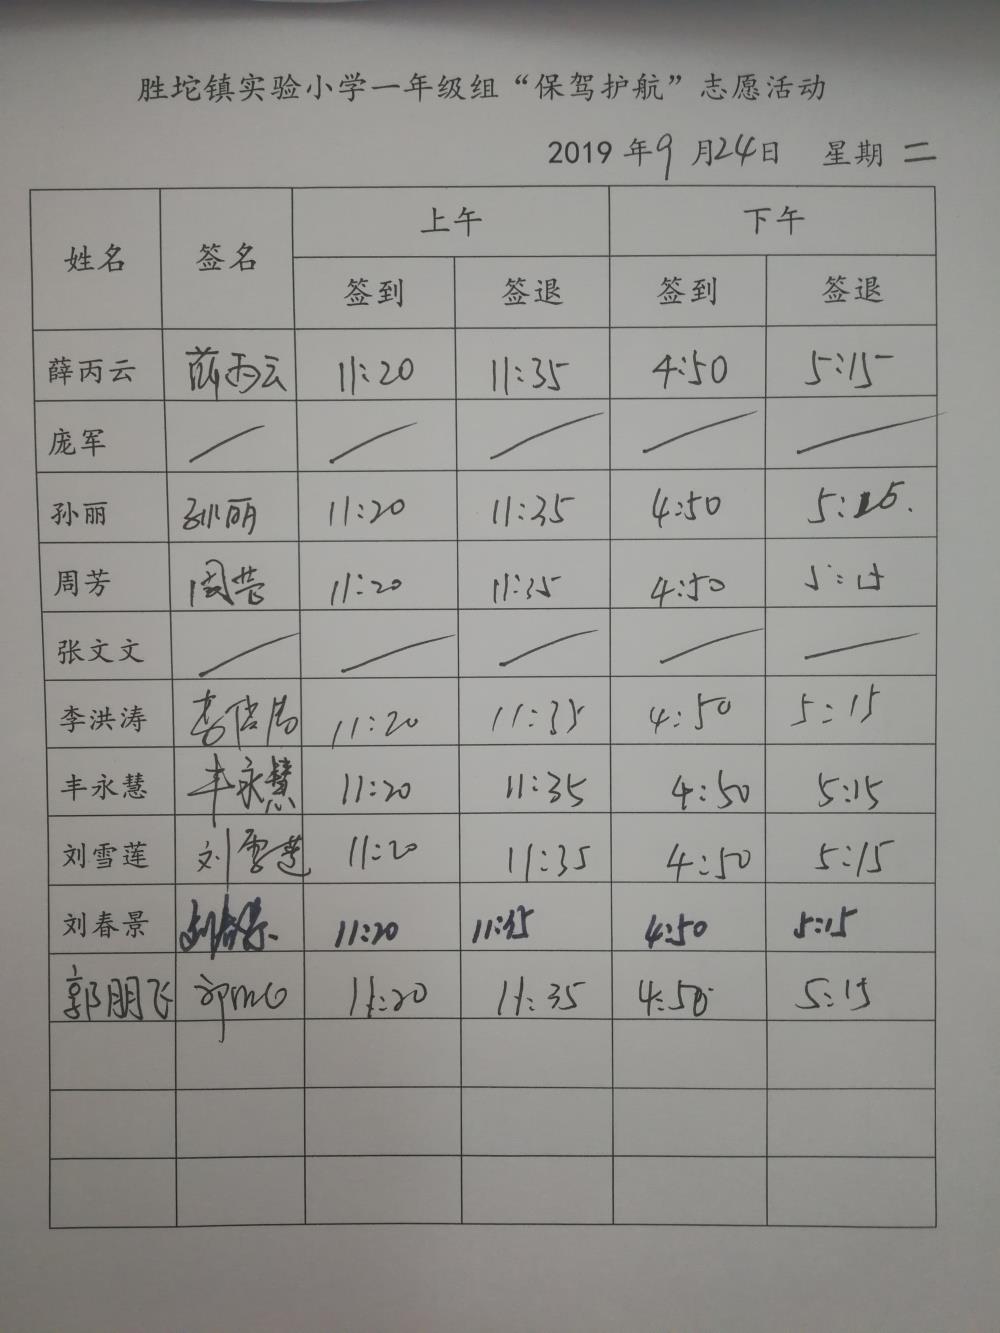 胜坨镇实验小学一年级组“保驾护航”志愿活动
2019 年9 月24日 星期 二
姓名 签名 上午 下午
签到 签退 签到 签退
薛丙云 薛丙云 11:20 11:35 4:50 5:15
庞军
孙丽 孙丽 11:20 11:35 4:50 5:15.
周芳 周芳 11:20 11:35 4:50 5:15
张文文
李洪涛 李洪涛 11:20 11:35 4:50 5:15
丰永慧 丰永慧 11:20 11:35 4:50 5:15
刘雪莲 刘雪莲 11:20 11:35 4:50 5:15
刘春景 刘春景 11:20 11:35 4:50 5:15
郭朋飞 11:20 11:35 4:50 5:15